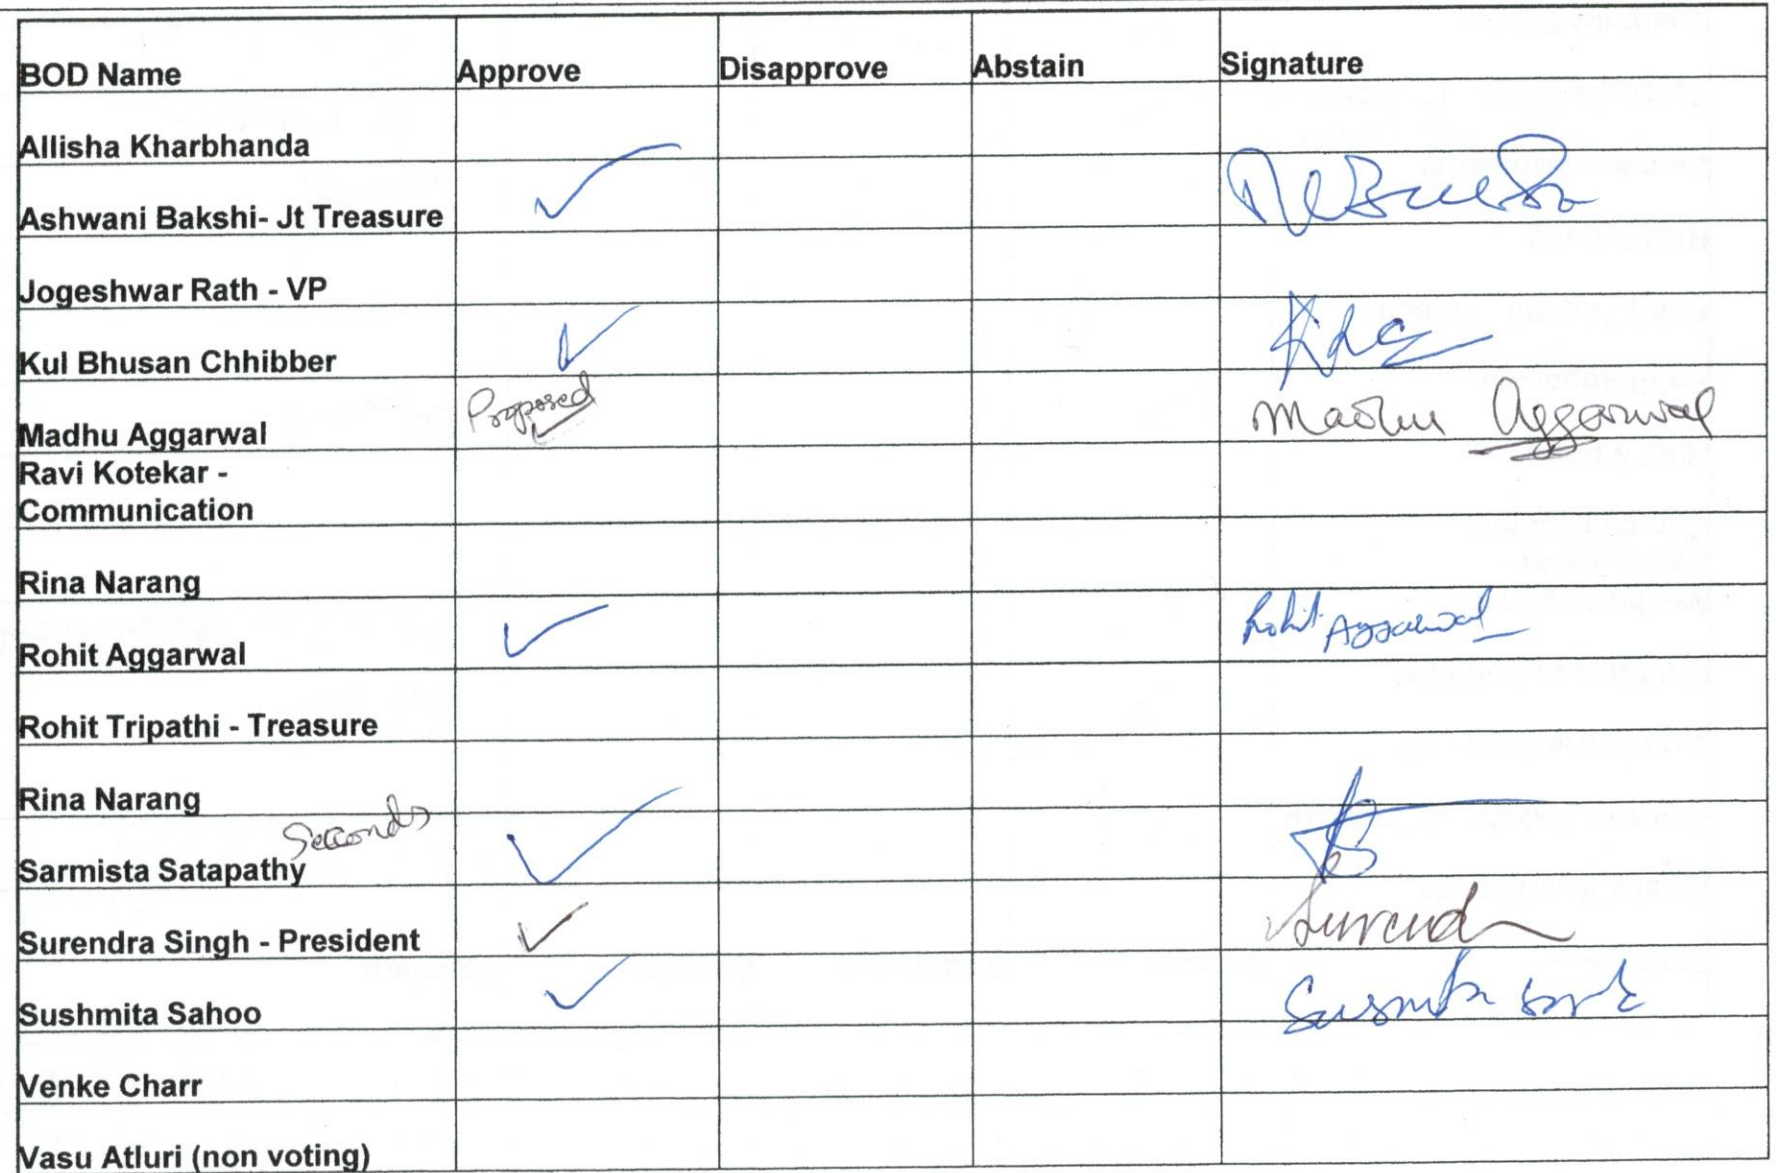 BOD Name Approve Disapprove Abstain Signature
Allisha Kharbhanda
Ashwani Bakshi- Jt Treasure
Jogeshwar Rath - VP
Kul Bhusan Chhibber
Madhu Aggarwal Proposed Madhu Aggarwal
Ravi Kotekar -
Communication
Rina Narang
Rohit Aggarwal Rohit Aggarwal
Rohit Tripathi - Treasure
Rina Narang
Seconds
Sarmista Satapathy
Surendra Singh - President Surend
Sushmita Sahoo
Venke Charr
Vasu Atluri (non voting)